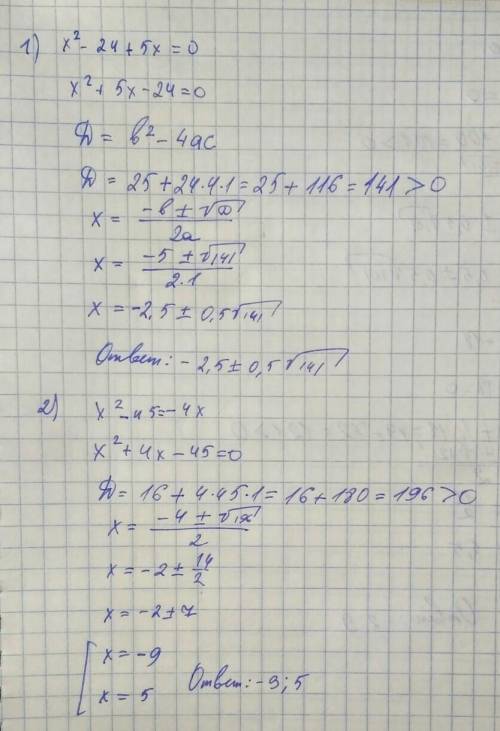 1) x² - 24 + 5x = 0
x² + 5x - 24 = 0
D = b² - 4ac
D = 25 + 24·4·1 = 25 + 116 = 141 > 0
x = (-b ± √D) / 2a
x = (-5 ± √141) / 2·1
x = -2,5 ± 0,5√141
Ответ: -2,5 ± 0,5√141
2) x² - 45 = -4x
x² + 4x - 45 = 0
D = 16 + 4·45·1 = 16 + 180 = 196 > 0
x = (-4 ± √196) / 2
x = -2 ± 14/2
x = -2 ± 7
x = -9
x = 5 Ответ: -9; 5